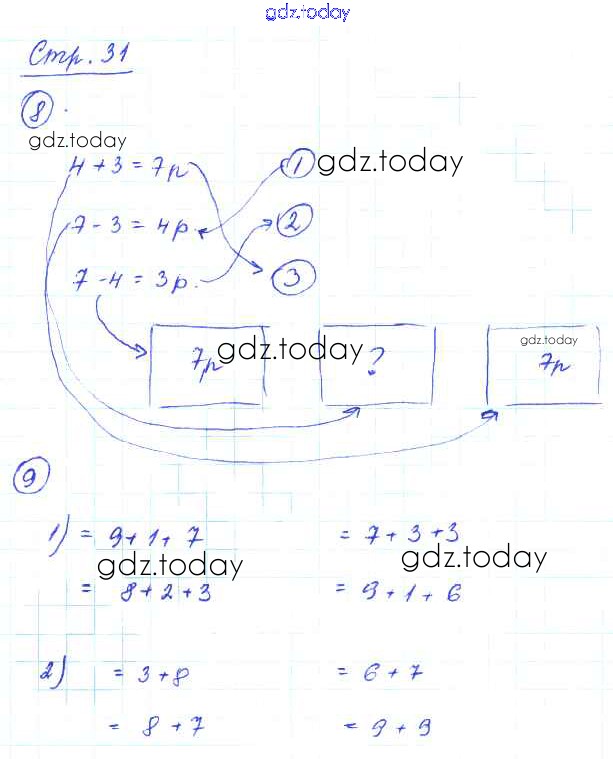 gdz.today
Стр. 31
8.
gdz.today
4 + 3 = 7р 1 gdz.today
7 - 3 = 4р. 2
7 - 4 = 3р. 3
7р gdz.today ? gdz.today 7р
9
1) = 9 + 1 + 7 = 7 + 3 + 3
gdz.today gdz.today
= 8 + 2 + 3 = 9 + 1 + 6
2) = 3 + 8 = 6 + 7
= 8 + 7 = 9 + 9